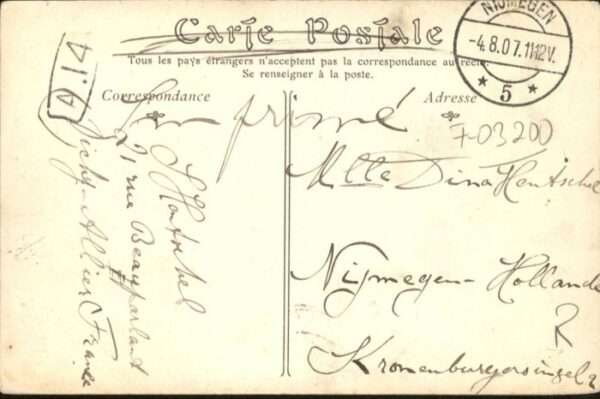 Carte Postale
Tous les pays étrangers n'acceptent pas la correspondance au recto
Se renseigner à la poste.
NIJMEGEN
-4.8.07.11-12V.
* 5 *
Correspondance
Adresse
primé
7-03200
Mlle Dina Hentschel
Nijmegen-Hollande
Kronenburgersingel
R
21 rue Beauparlant
Vichy-Allier France